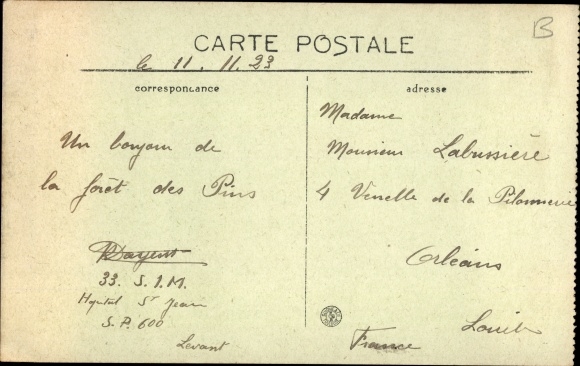 B
CARTE POSTALE
le 11.11.23
correspondance
Un bonjour de
la forêt des Pins
33. S.I.M.
Hopital St Jean
S.P. 600
Levant
adresse
Madame
Monsieur Labussière
4 Venelle de la
Orléans
Loiret
France